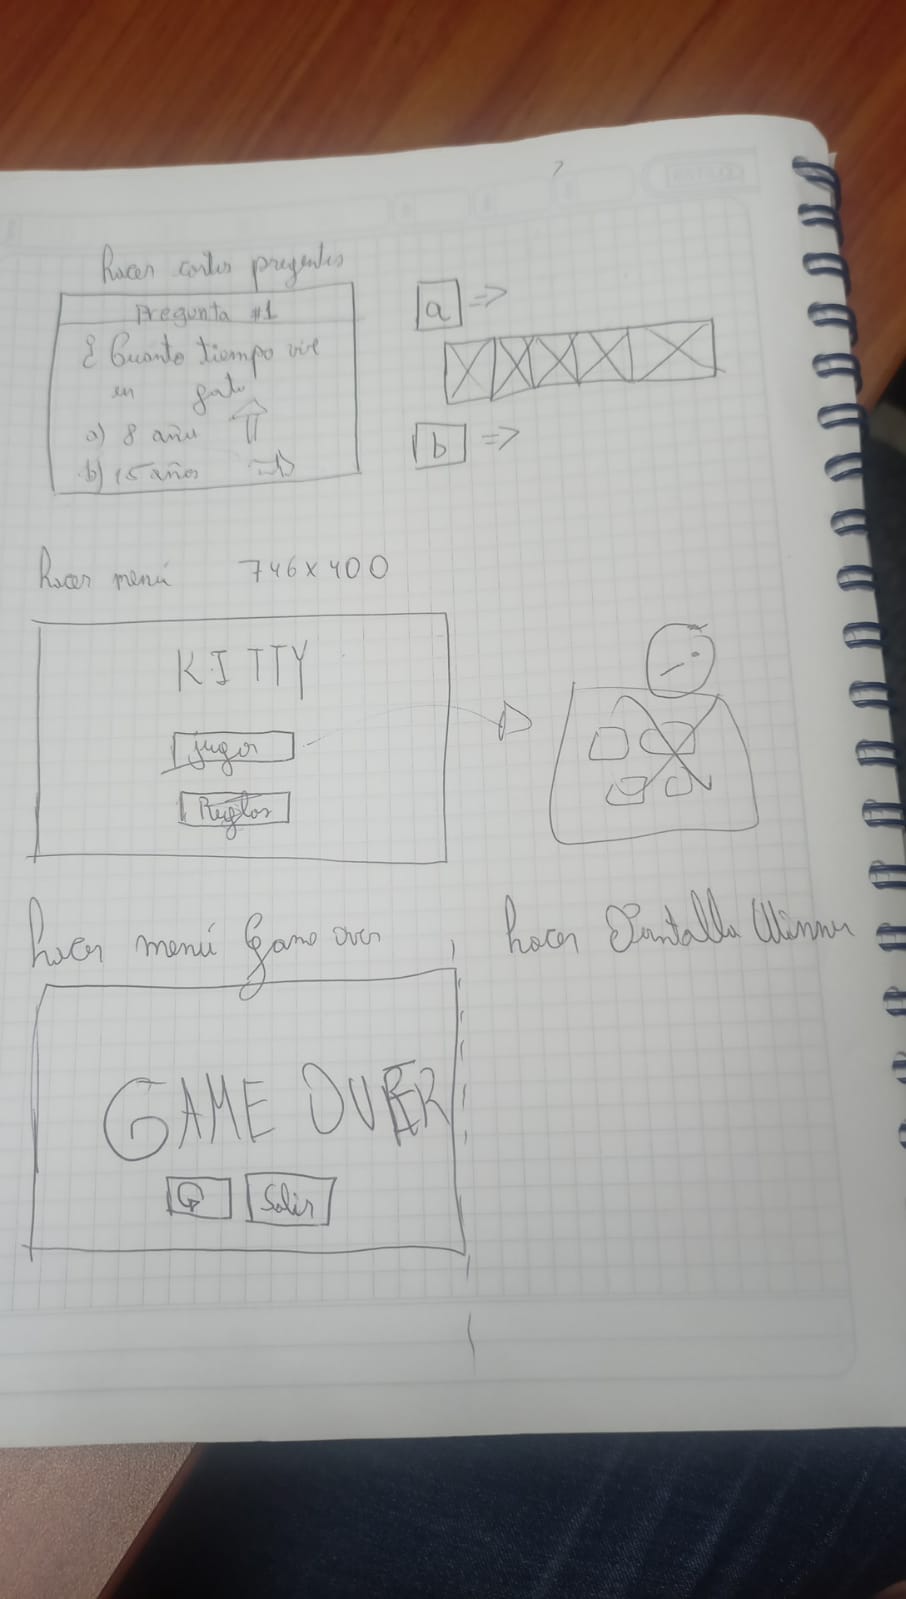 hacer cartas preguntas
Pregunta #1
¿ Cuanto tiempo vive
un gato
a) 8 años
b) 15 años
a =>
b =>
hacer menú 746x400
KITTY
jugar
Reglas
hacer menú Game over
hacer Pantalla Winner
GAME OVER
Salir